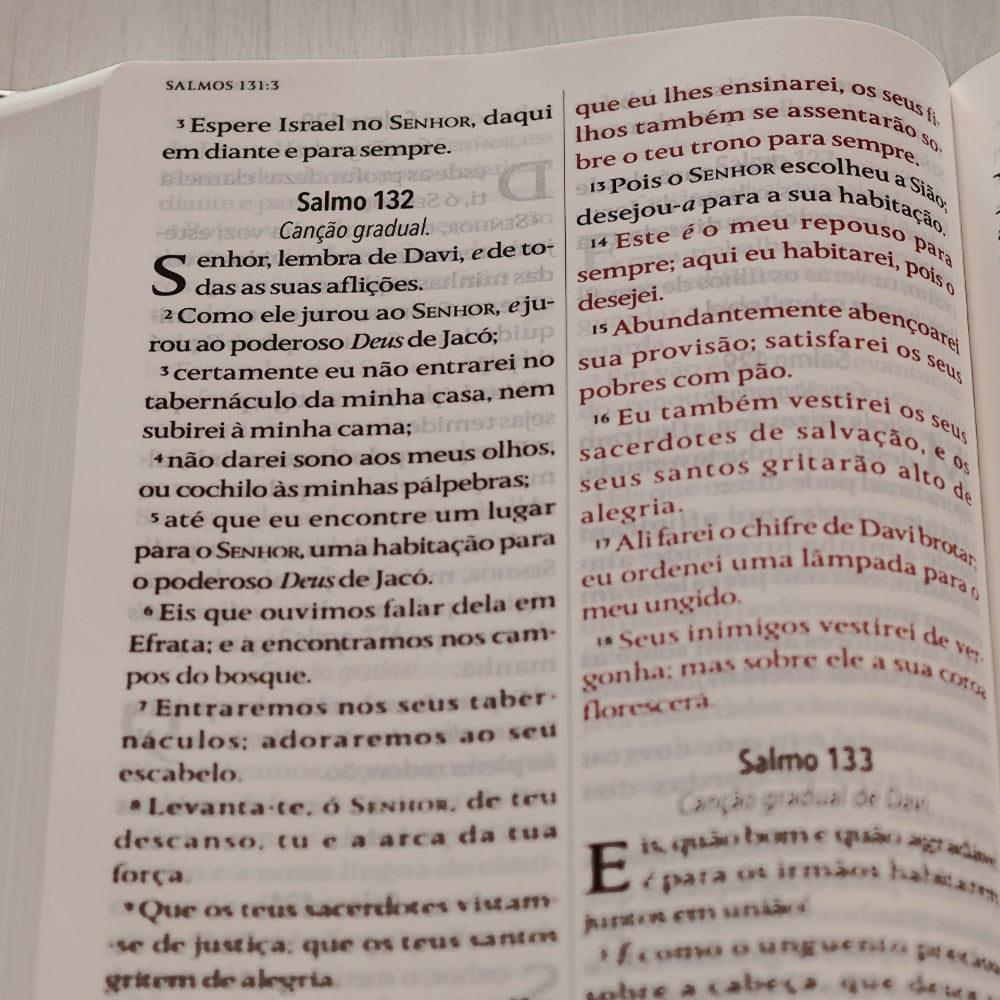 SALMOS 131:3
3 Espere Israel no SENHOR, daqui
em diante e para sempre.
Salmo 132
Canção gradual.
Senhor, lembra de Davi, e de to-
das as suas aflições.
2 Como ele jurou ao SENHOR, e ju-
rou ao poderoso Deus de Jacó;
3 certamente eu não entrarei no
tabernáculo da minha casa, nem
subirei à minha cama;
4 não darei sono aos meus olhos,
ou cochilo às minhas pálpebras;
5 até que eu encontre um lugar
para o SENHOR, uma habitação para
o poderoso Deus de Jacó.
6 Eis que ouvimos falar dela em
Efrata; e a encontramos nos cam-
pos do bosque.
7 Entraremos nos seus taber-
náculos; adoraremos ao seu
escabelo.
8 Levanta-te, ó SENHOR, de teu
descanso, tu e a arca da tua
força.
9 Que os teus sacerdotes vistam-
-se de justiça; que os teus santos
gritem de alegria.
que eu lhes ensinarei, os seus fi-
lhos também se assentarão so-
bre o teu trono para sempre.
13 Pois o SENHOR escolheu a Sião;
desejou-a para a sua habitação.
14 Este é o meu repouso para
sempre; aqui eu habitarei, pois o
desejei.
15 Abundantemente abençoarei
sua provisão; satisfarei os seus
pobres com pão.
16 Eu também vestirei os seus
sacerdotes de salvação, e os
seus santos gritarão alto de
alegria.
17 Ali farei o chifre de Davi brotar;
eu ordenei uma lâmpada para o
meu ungido.
18 Seus inimigos vestirei de ver-
gonha; mas sobre ele a sua coroa
florescerá.
Salmo 133
Canção gradual de Davi.
Eis, quão bom e quão agradável
é para os irmãos habitarem
juntos em união!
2 É como o unguento precioso
sobre a cabeça, que